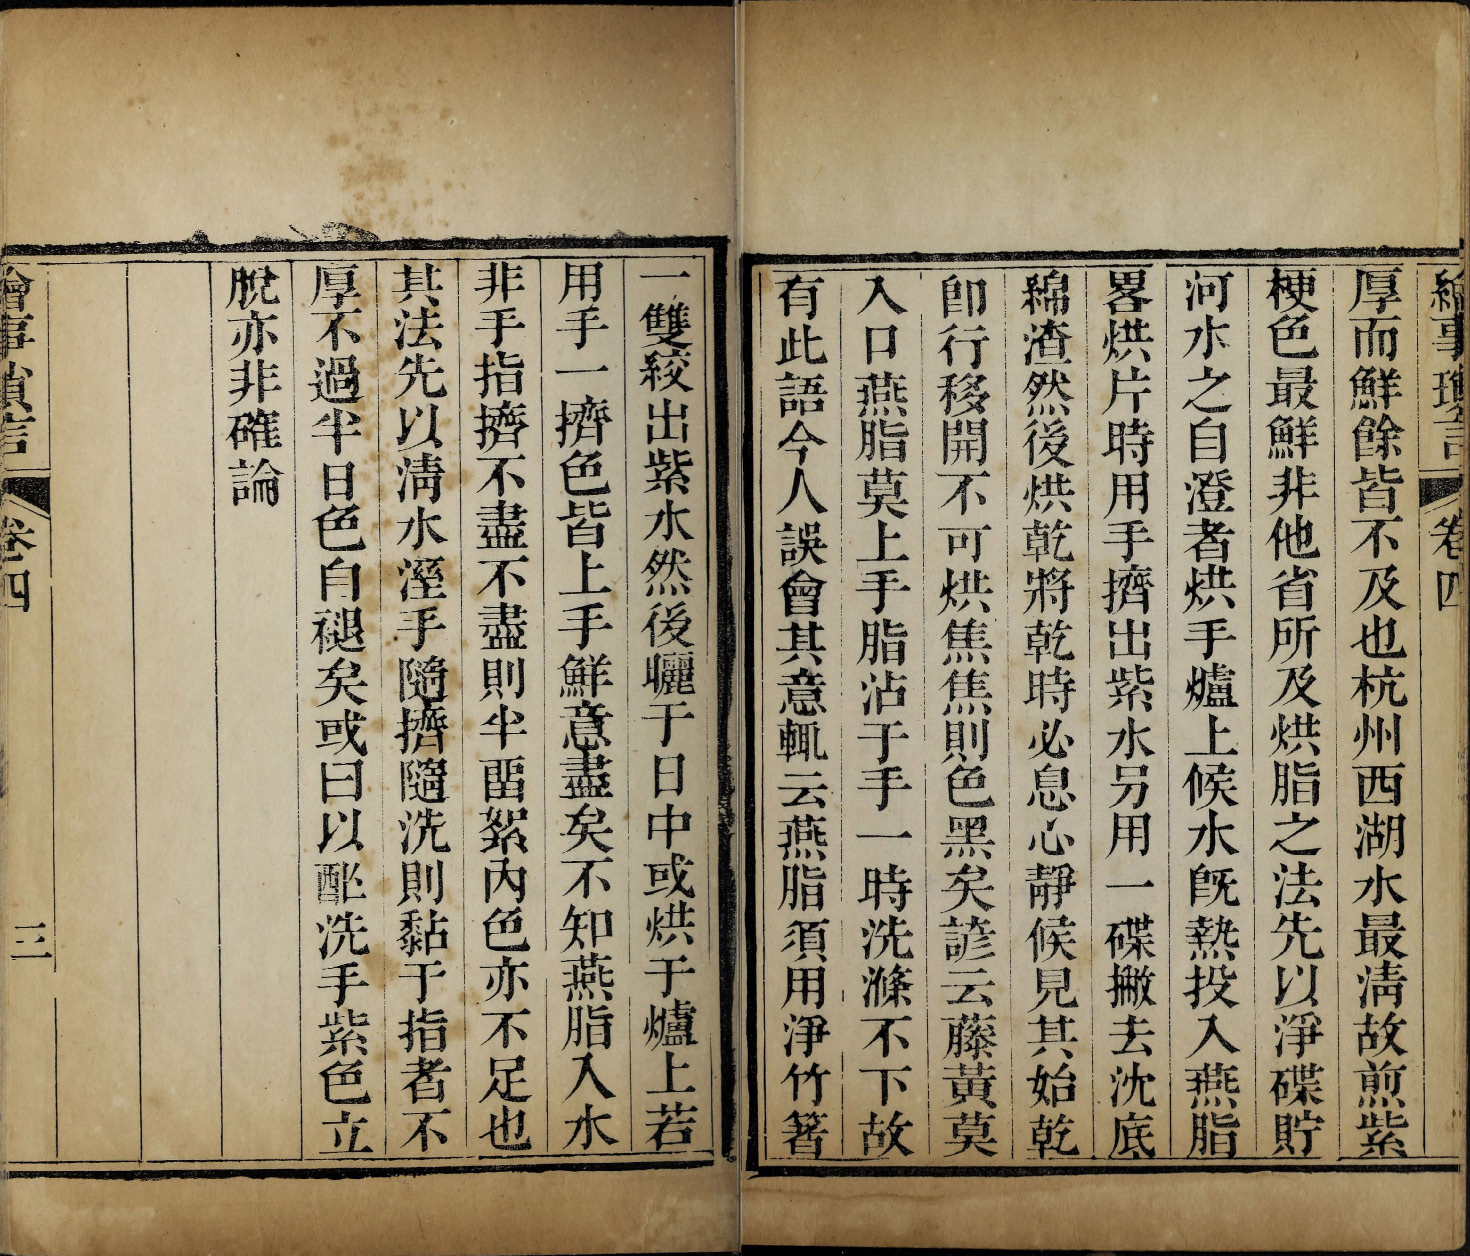 繪事瑣言 卷四
厚而鮮餘皆不及也杭州西湖水最淸故煎紫
梗色最鮮非他省所及烘脂之法先以淨碟貯
河水之自澄者烘手爐上候水旣熱投入燕脂
畧烘片時用手擠出紫水另用一碟撇去沈底
綿渣然後烘乾將乾時必息心靜候見其始乾
卽行移開不可烘焦焦則色黑矣諺云藤黃莫
入口燕脂莫上手脂沾于手一時洗滌不下故
有此語今人誤會其意輒云燕脂須用淨竹箸
一雙絞出紫水然後曬于日中或烘于爐上若
用手一擠色皆上手鮮意盡矣不知燕脂入水
非手指擠不盡不盡則半畱絮內色亦不足也
其法先以淸水溼手隨擠隨洗則黏于指者不
厚不過半日色自褪矣或曰以酢洗手紫色立
脫亦非確論
繪事瑣言 卷四 三